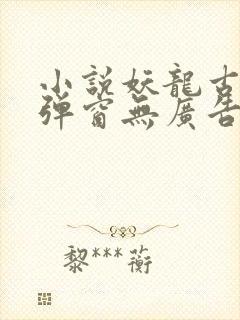 小說妖龍古
彈窗無廣告
黎***蘅